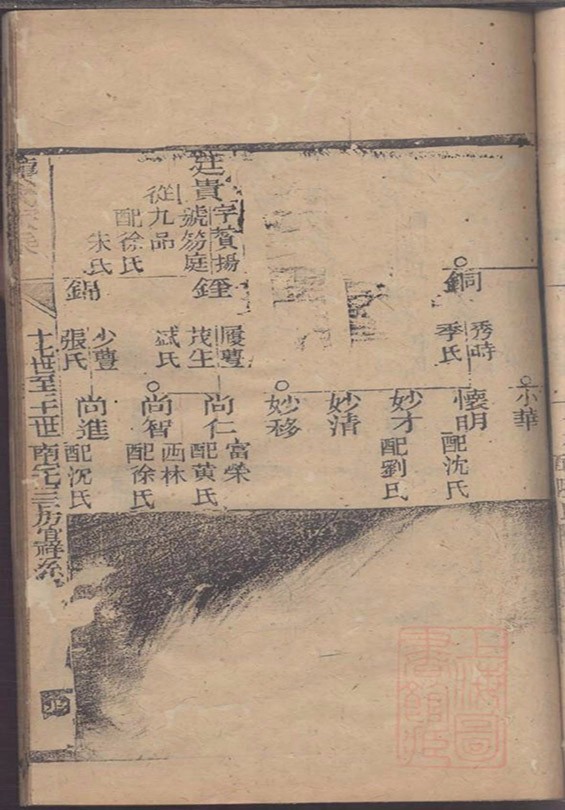 小華
銅
秀時
季氏
懷明
配沈氏
妙才
配劉氏
妙清
妙移
廷貴
字賛揚
號笏庭
從九品
配徐氏
朱氏
鋥
履豐
茂生
武氏
尚仁
富榮
配黄氏
尚智
西林
配徐氏
錦
少豊
張氏
尚進
配沈氏
世至三世南宅三房宜祥系
上海圖
書館藏